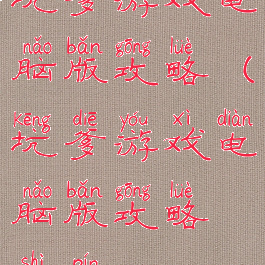 坑爹游戏电
nǎo bǎn gōng lüè
脑版攻略（
kēng diē yóu xì diàn
坑爹游戏电
nǎo bǎn gōng lüè
脑版攻略
shì pín